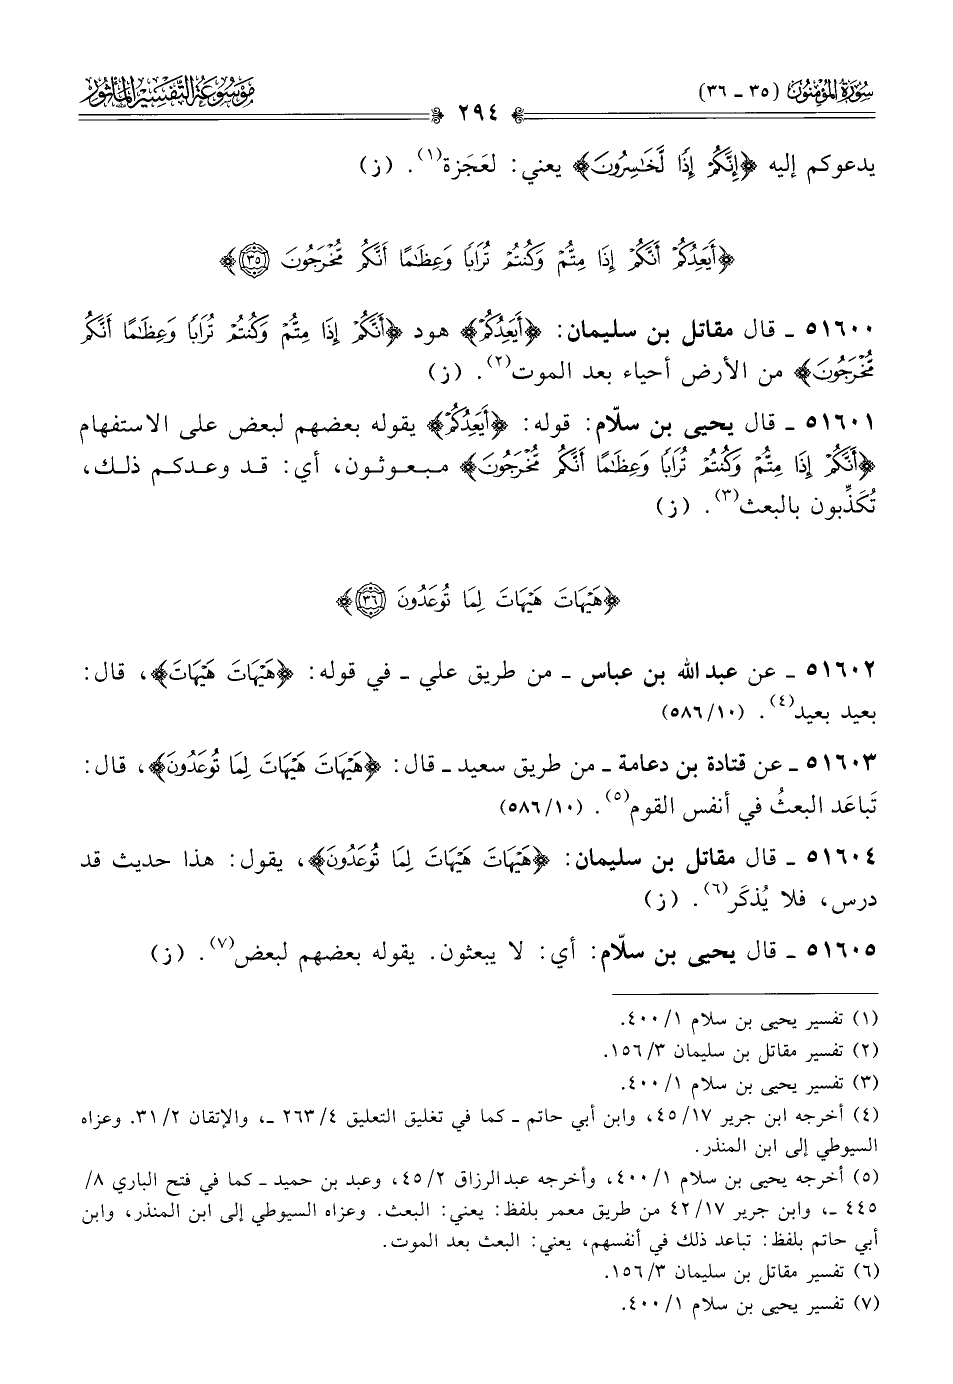 سُورَةُ المُؤْمِنُونَ (٣٥ - ٣٦)
٢٩٤
مَوْسُوعَةُ التَّفْسِيرِ المَأْثُور
يدعوكم إليه ﴿إِنَّكُمْ إِذًا لَّخَاسِرُونَ﴾ يعني: لعَجَزة(١). (ز)
﴿أَيَعِدُكُمْ أَنَّكُمْ إِذَا مِتُّمْ وَكُنتُمْ تُرَابًا وَعِظَامًا أَنَّكُم مُّخْرَجُونَ ٣٥﴾
٥١٦٠٠ ـ قال مقاتل بن سليمان: ﴿أَيَعِدُكُمْ﴾ هود ﴿أَنَّكُمْ إِذَا مِتُّمْ وَكُنتُمْ تُرَابًا وَعِظَامًا أَنَّكُم
مُّخْرَجُونَ﴾ من الأرض أحياء بعد الموت(٢). (ز)
٥١٦٠١ ـ قال يحيى بن سلّام: قوله: ﴿أَيَعِدُكُمْ﴾ يقوله بعضهم لبعض على الاستفهام
﴿أَنَّكُمْ إِذَا مِتُّمْ وَكُنتُمْ تُرَابًا وَعِظَامًا أَنَّكُم مُّخْرَجُونَ﴾ مبعوثون، أي: قد وعدكم ذلك،
تُكَذِّبون بالبعث(٣). (ز)
﴿هَيْهَاتَ هَيْهَاتَ لِمَا تُوعَدُونَ ٣٦﴾
٥١٦٠٢ ـ عن عبد الله بن عباس ـ من طريق علي ـ في قوله: ﴿هَيْهَاتَ هَيْهَاتَ﴾، قال:
بعيد بعيد(٤). (١٠/ ٥٨٦)
٥١٦٠٣ ـ عن قتادة بن دعامة ـ من طريق سعيد ـ قال: ﴿هَيْهَاتَ هَيْهَاتَ لِمَا تُوعَدُونَ﴾، قال:
تَباعَد البعثُ في أنفس القوم(٥). (١٠/ ٥٨٦)
٥١٦٠٤ ـ قال مقاتل بن سليمان: ﴿هَيْهَاتَ هَيْهَاتَ لِمَا تُوعَدُونَ﴾، يقول: هذا حديث قد
درس، فلا يُذكَر(٦). (ز)
٥١٦٠٥ ـ قال يحيى بن سلّام: أي: لا يبعثون. يقوله بعضهم لبعض(٧). (ز)
(١) تفسير يحيى بن سلام ١/ ٤٠٠.
(٢) تفسير مقاتل بن سليمان ٣/ ١٥٦.
(٣) تفسير يحيى بن سلام ١/ ٤٠٠.
(٤) أخرجه ابن جرير ١٧/ ٤٥، وابن أبي حاتم ـ كما في تغليق التعليق ٤/ ٢٦٣ ـ، والإتقان ٢/ ٣١. وعزاه
السيوطي إلى ابن المنذر.
(٥) أخرجه يحيى بن سلام ١/ ٤٠٠، وأخرجه عبدالرزاق ٢/ ٤٥، وعبد بن حميد ـ كما في فتح الباري ٨/
٤٤٥ ـ، وابن جرير ١٧/ ٤٢ من طريق معمر بلفظ: يعني: البعث. وعزاه السيوطي إلى ابن المنذر، وابن
أبي حاتم بلفظ: تباعد ذلك في أنفسهم، يعني: البعث بعد الموت.
(٦) تفسير مقاتل بن سليمان ٣/ ١٥٦.
(٧) تفسير يحيى بن سلام ١/ ٤٠٠.